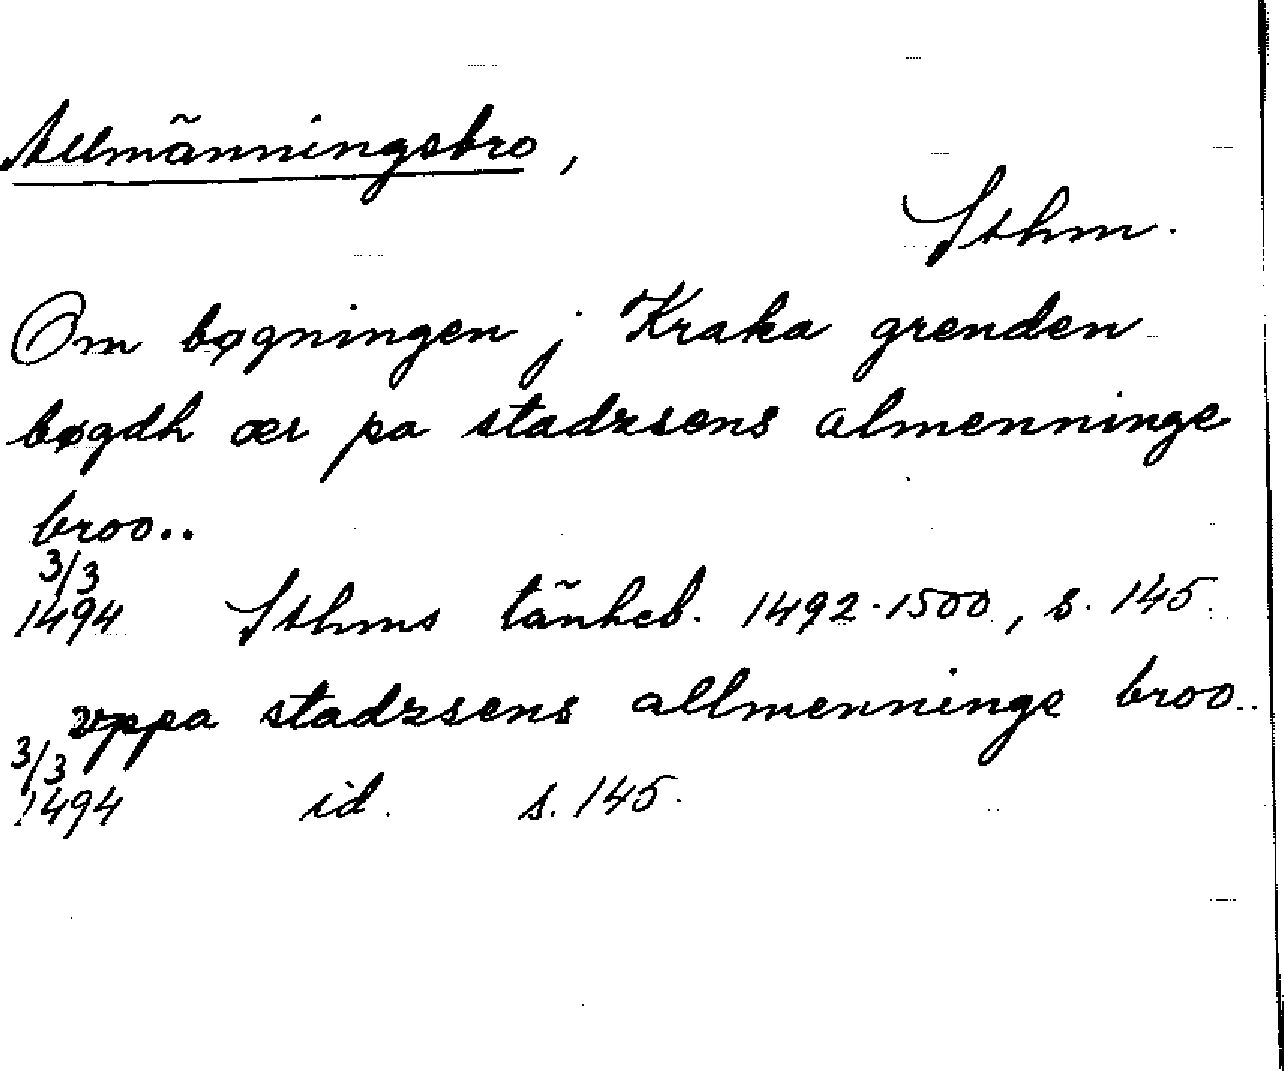 Allmänningsbro,
Sthm.
Om bøgningen j Kraka grenden
bøgdh ær pa stadzsens almenninge
broo..
3/3
1494 Sthms tänkeb. 1492-1500, s. 145.
vppa stadzsens allmenninge broo..
3/3
1494 id. s. 145.